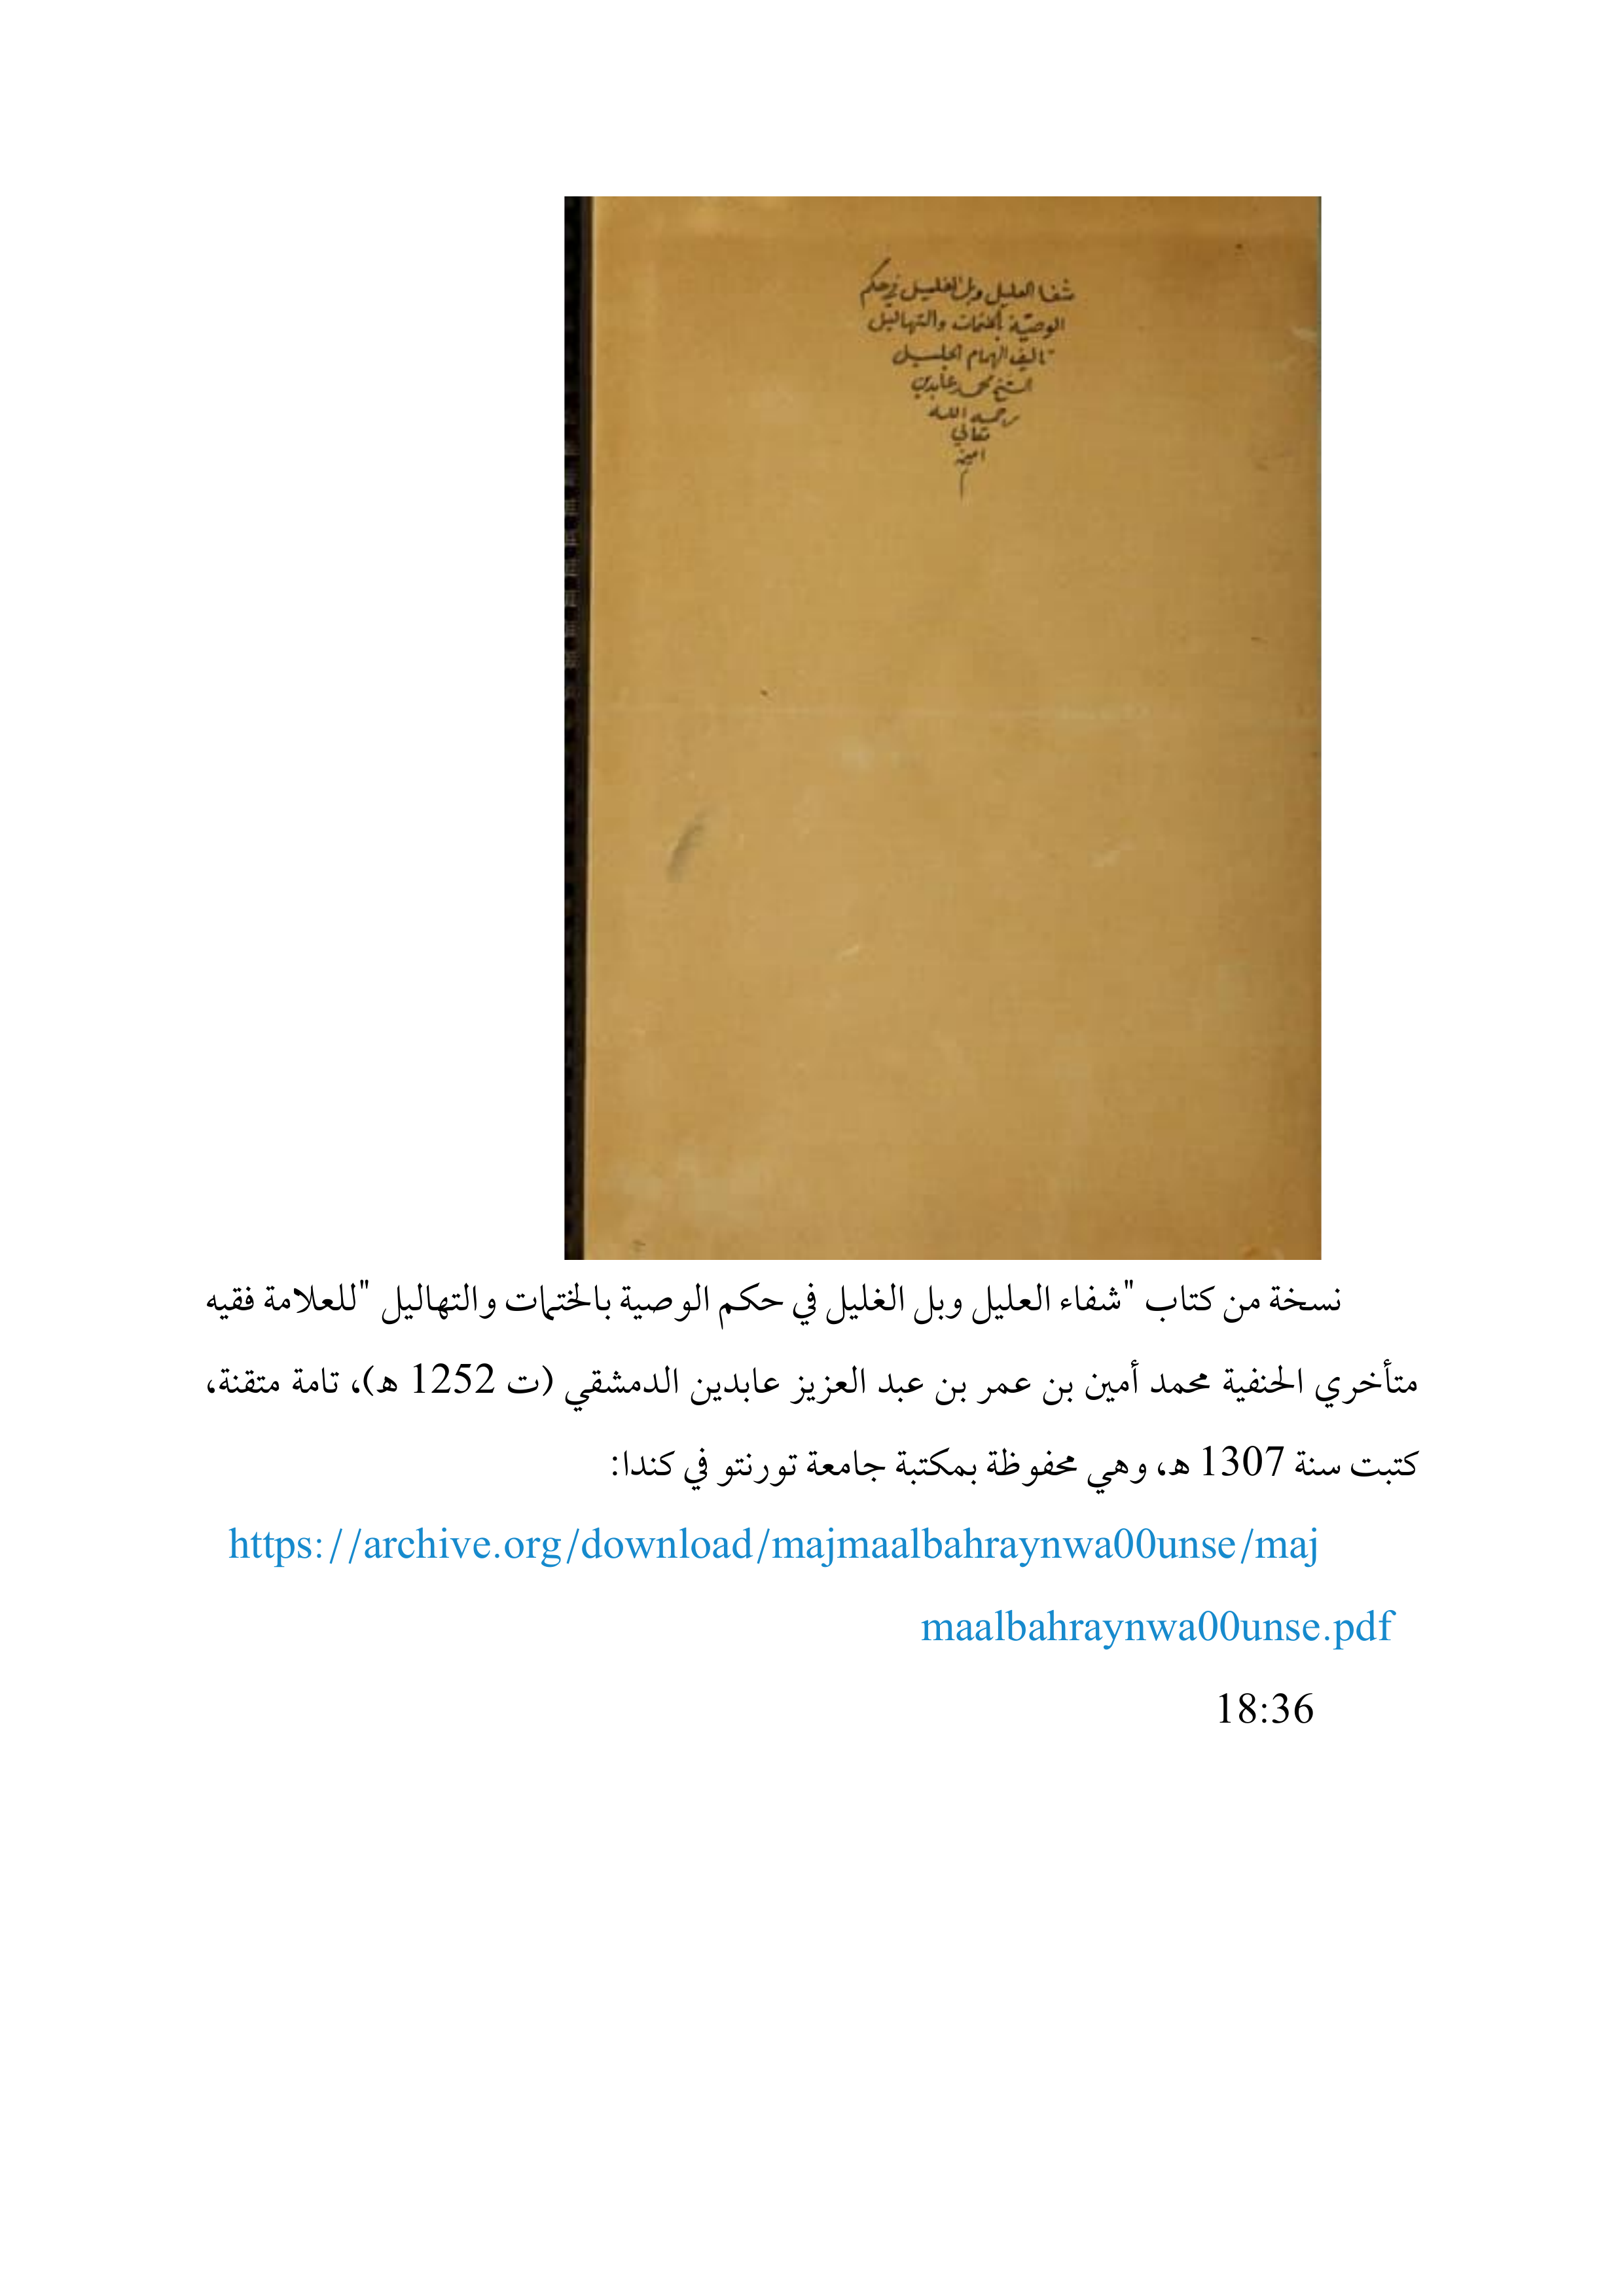 شفا العليل وبل الغليل في حكم
الوصية بالختمات والتهاليل
تاليف الهمام الجليل
الشيخ محمد عابدين
رحمه الله
تعالي
امين
م
نسخة من كتاب "شفاء العليل وبل الغليل في حكم الوصية بالختمات والتهاليل "للعلامة فقيه
متأخري الحنفية محمد أمين بن عمر بن عبد العزيز عابدين الدمشقي (ت 1252 هـ)، تامة متقنة،
كتبت سنة 1307 هـ، وهي محفوظة بمكتبة جامعة تورنتو في كندا:
https://archive.org/download/majmaalbahraynwa00unse/maj
maalbahraynwa00unse.pdf
18:36